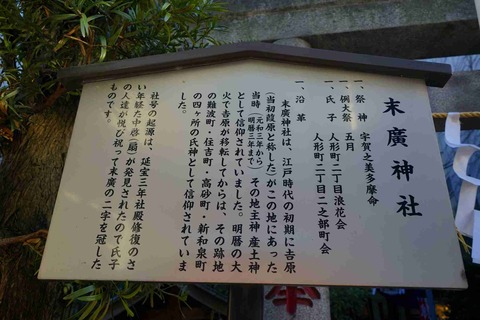 末廣神社
一、祭神　宇賀之美多摩命
一、例大祭　五月
一、氏子　人形町二丁目浪花会
人形町二丁目二之部町会
一、沿革
末廣神社は、江戸時代の初期に吉原
(当初葭原と称した)がこの地にあった
当時(元和三年から明暦三年まで)その地主神産土神
として信仰されていました。明暦の大
火で吉原が移転してからは、その跡地
の難波町・住吉町・高砂町・新和泉町
の四ヶ所の氏神として信仰されていま
した。
社号の起源は、延宝三年社殿修復のさ
い年経た中啓(扇)が発見されたので氏子
の人達が悦び祝って末廣の二字を冠した
ものです。